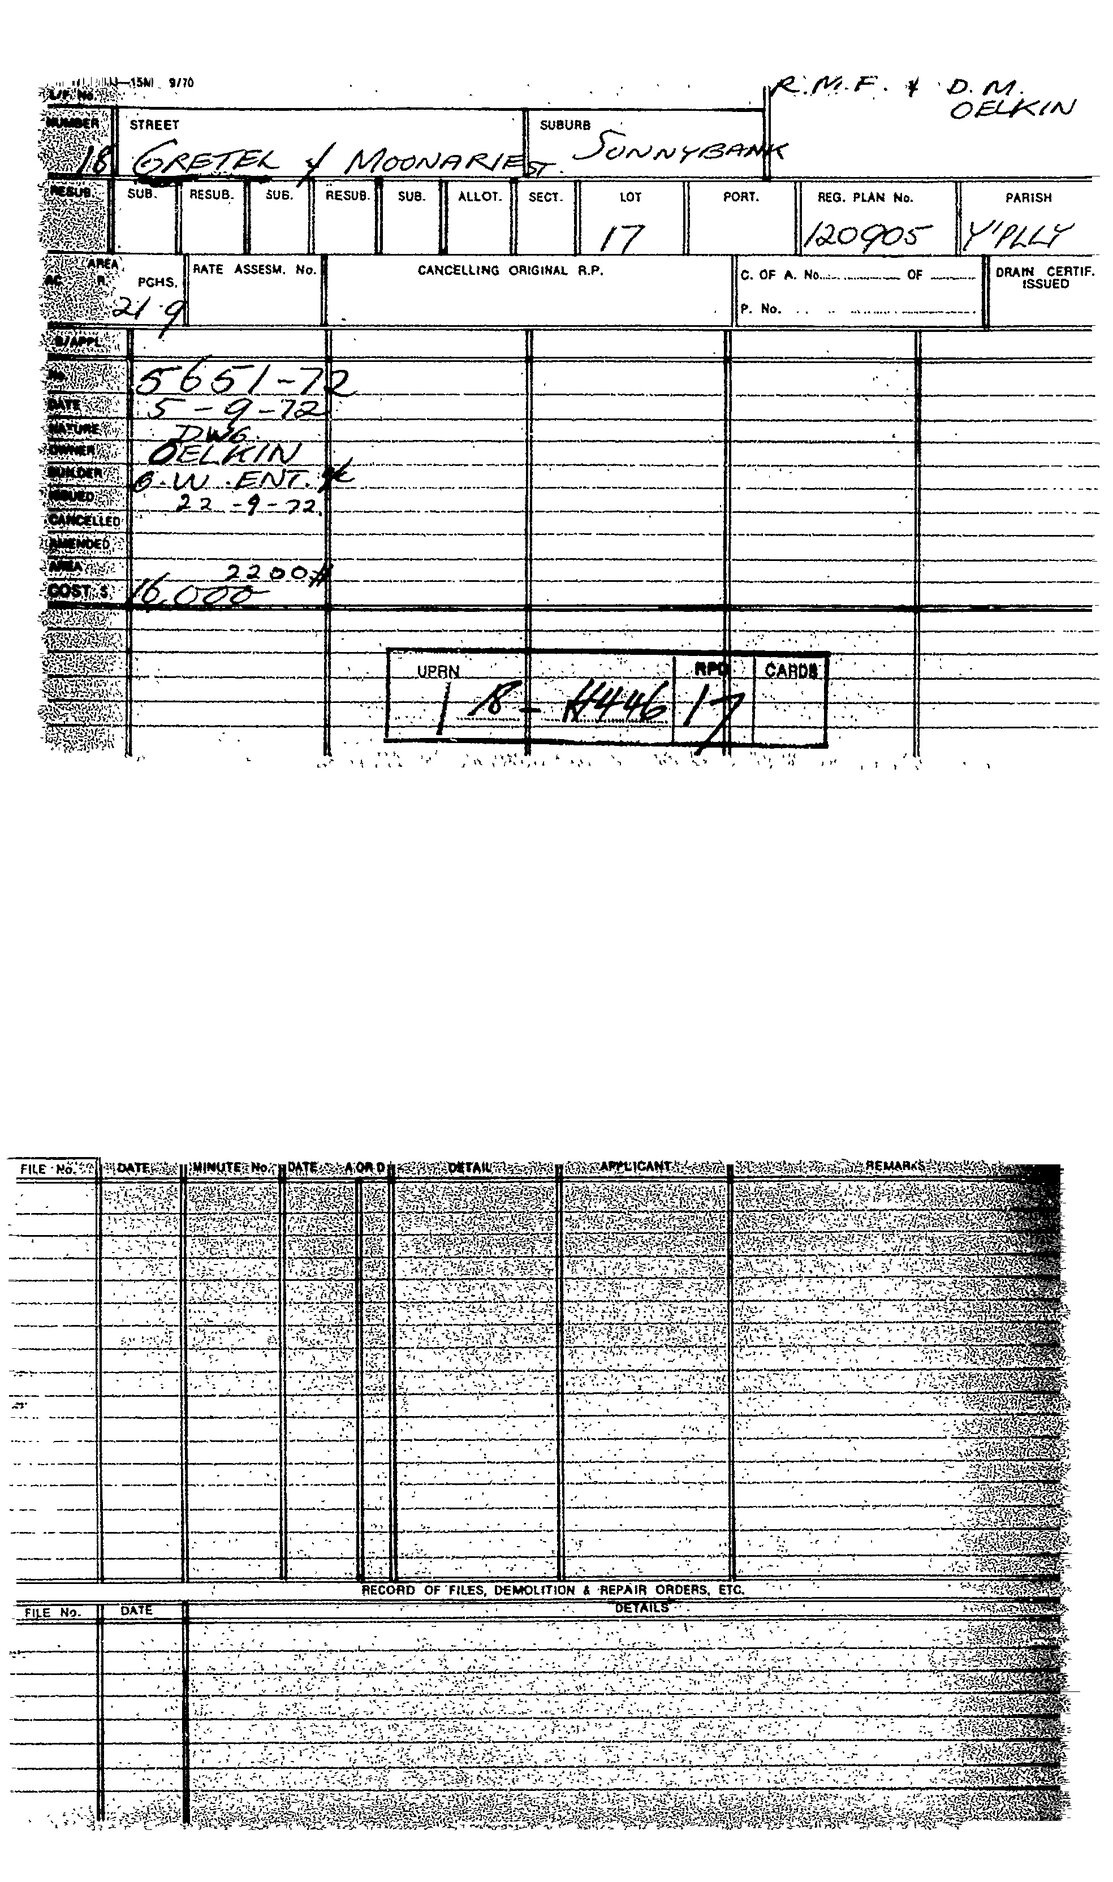 15M 9/70
R.M.F. & D.M.
OELKIN
NUMBER STREET SUBURB
18 GRETEL & MOONARIE ST. SUNNYBANK
RESUB. SUB. RESUB. SUB. RESUB. SUB. ALLOT. SECT. LOT PORT. REG. PLAN No. PARISH
17 120905 Y'PLLY
AREA RATE ASSESM. No. CANCELLING ORIGINAL R.P. C. OF A. No. OF DRAIN CERTIF. ISSUED
AC R. PCHS.
21.9 P. No.
B/APPL.
No. 5651-72
DATE 5-9-72
NATURE DWG.
OWNER OELKIN
BUILDER G.W. ENT. P/L
ISSUED 22-9-72
CANCELLED
AMENDED
AREA 2200#
COST $ 16,000
UPRN RPD CARDS
1 18 - H446 17
FILE No. DATE MINUTE No. DATE A OR D DETAIL APPLICANT REMARKS
RECORD OF FILES, DEMOLITION & REPAIR ORDERS, ETC.
FILE No. DATE DETAILS